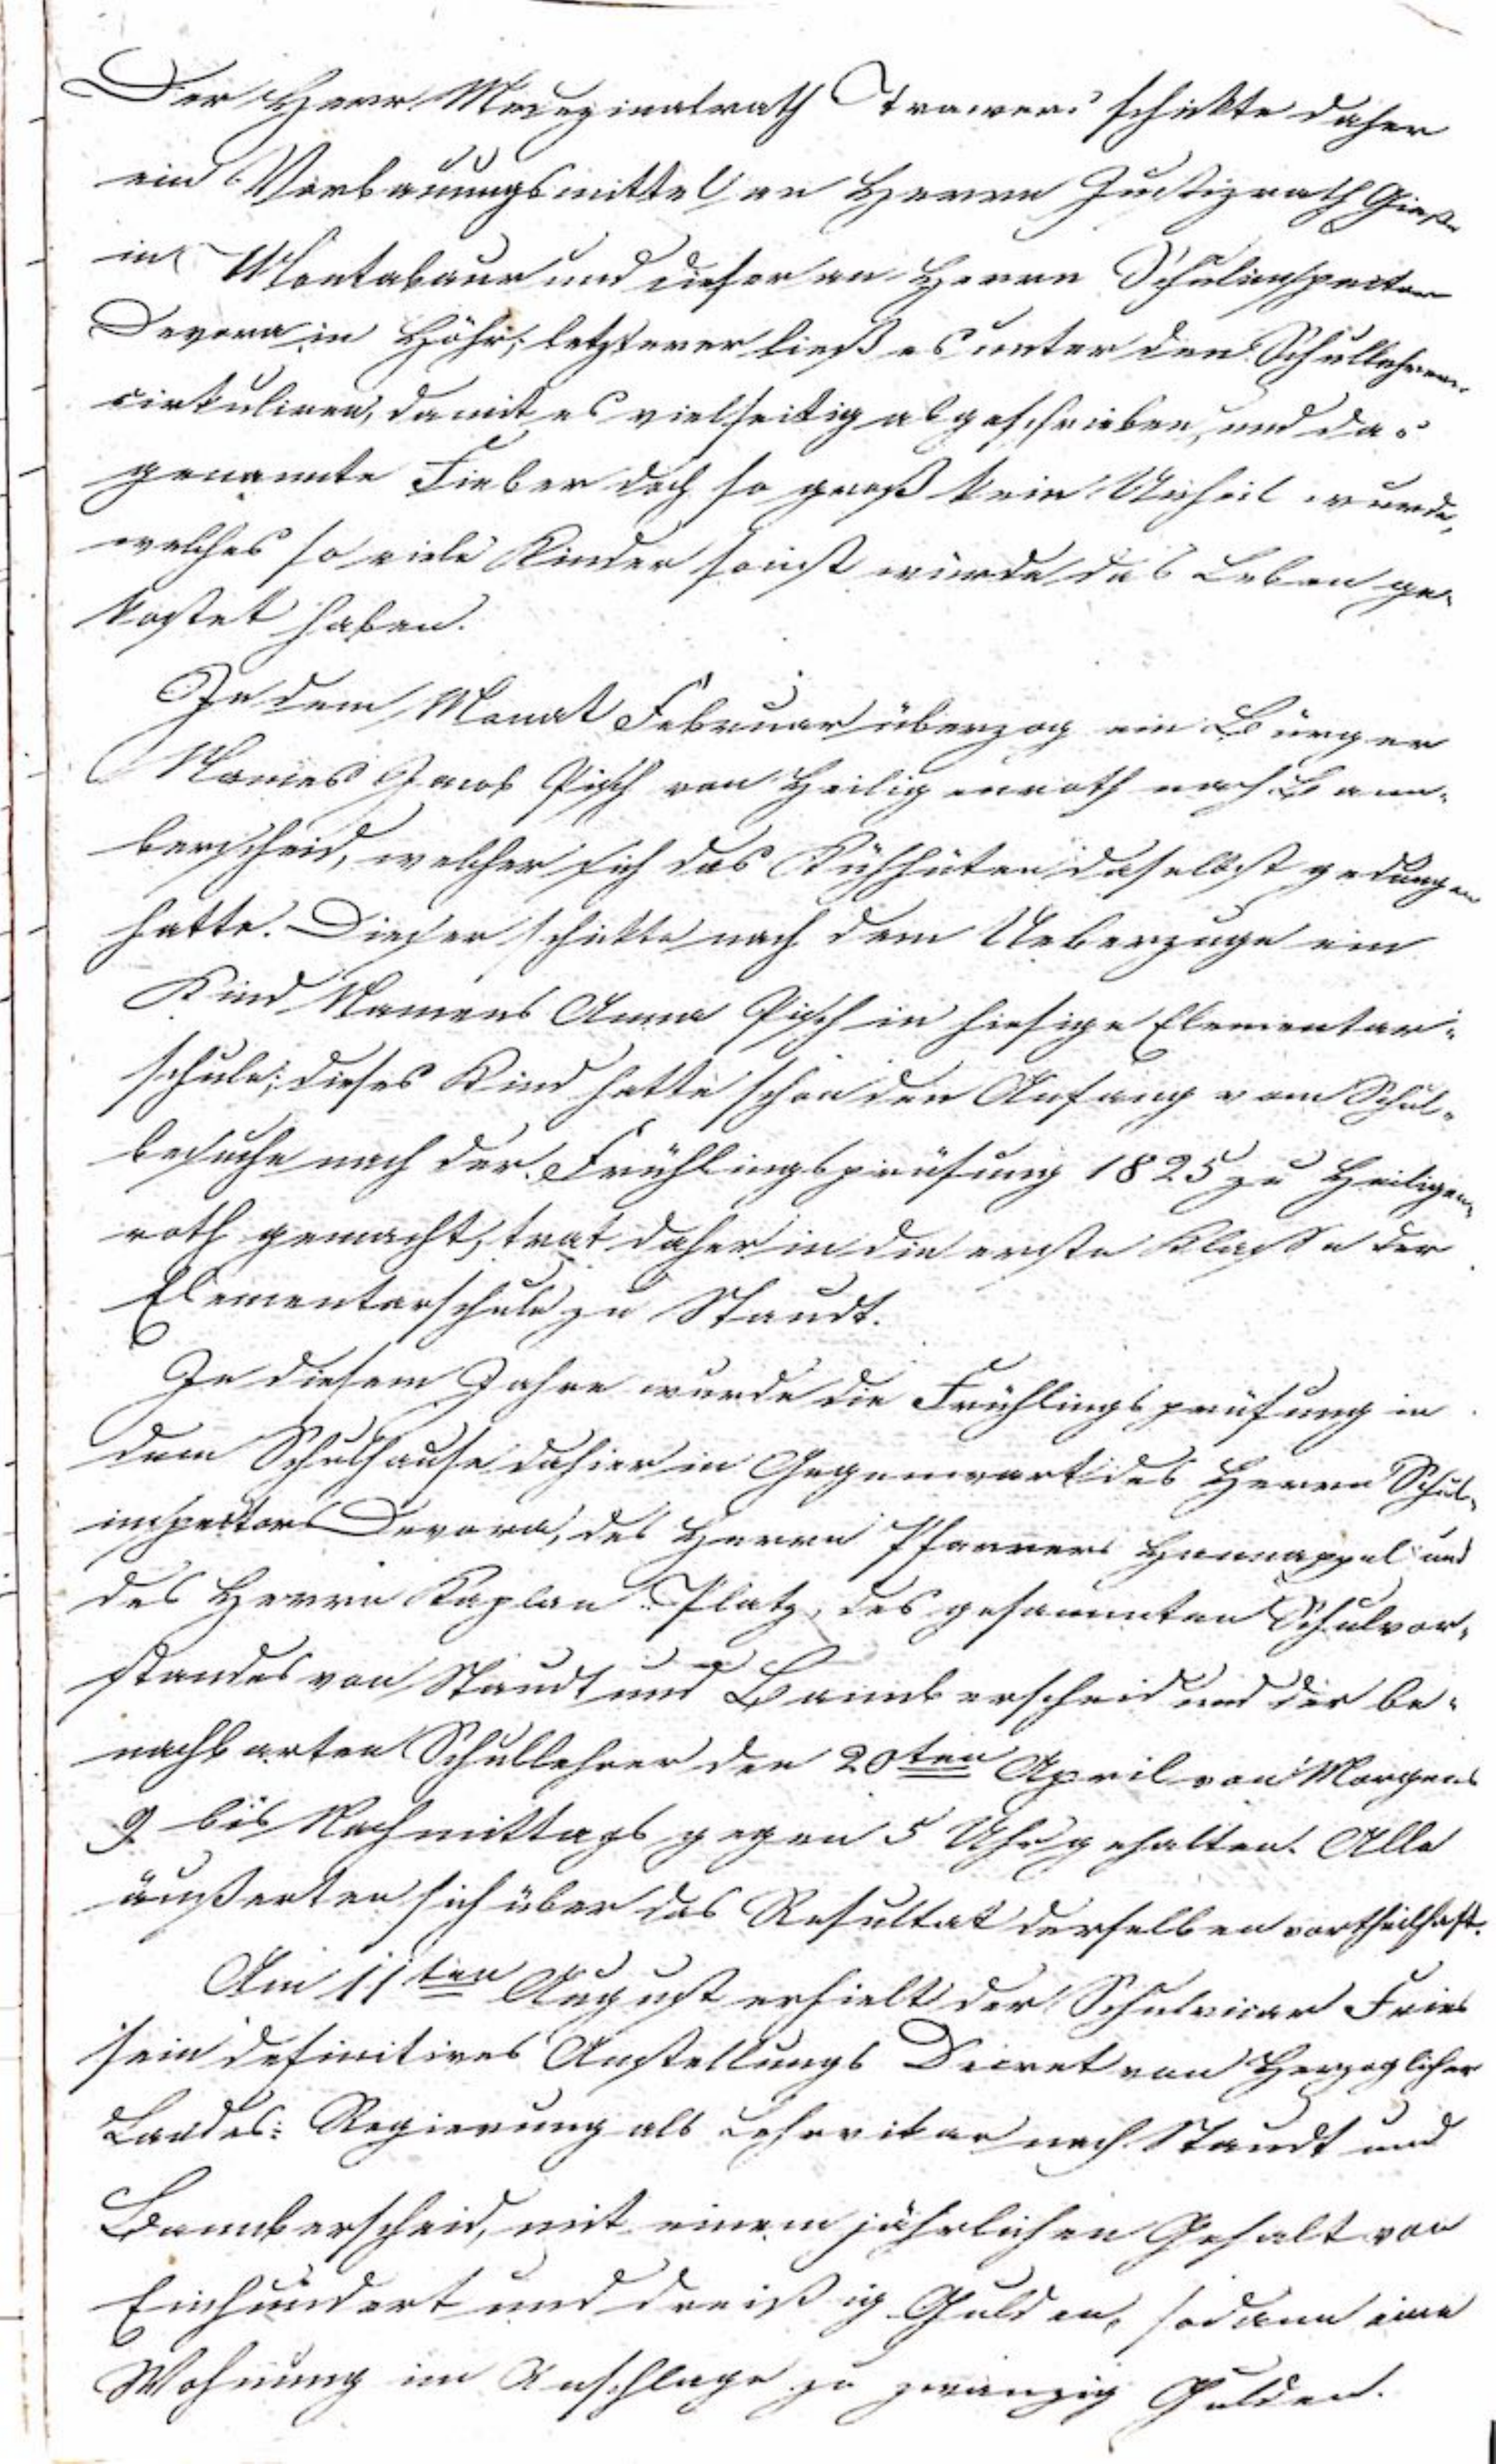 Der Herr Medizinalrath Trawers schickte daher
ein Vorbauungsmittel an Herrn Justizrath
in Montabaur und dieser an Herrn Schulinspector
Devora in Höhr; letzterer ließ es unter den Schullehrern
cirkuliren, damit es vielseitig abgeschrieben, und das
genannte Fieber doch so groß kein Unheil wurde,
welches so viele Kinder sonst würde das Leben ge-
kostet haben.
In dem Monat Februar überzog ein Bürger
Namens Jacob von Heiligenroth nach Bann-
berscheid, welcher sich das Kühhüten daselbst gedungen
hatte. Dieser schickte nach dem Ueberzuge ein
Kind Namens Anna in hiesige Elementar-
schule; dieses Kind hatte schon den Anfang vom Schul-
besuche nach der Frühlingsprüfung 1825 zu Heiligen-
roth gemacht, trat daher in die erste Klasse der
Elementarschule zu Staudt.
In diesem Jahre wurde die Frühlingsprüfung in
dem Schulhause dahier in Gegenwart des Herrn Schul-
inspectors Devora, des Herrn Pfarrers Hannappel und
des Herrn Kaplan Platz, des gesammten Schulvor-
standes von Staudt und Bannberscheid und der be-
nachbarten Schullehrer den 20ten April von Morgens
9 bis Nachmittags gegen 5 Uhr gehalten. Alle
äußerten sich über das Resultat derselben vortheilhaft.
Am 11ten August erhielt der Schulvicar Fries
sein definitives Anstellungs Decret von Herzoglicher
Landes: Regierung als Lehrvikar nach Staudt und
Bannberscheid, mit einem jährlichen Gehalt von
Einhundert und dreißig Gulden, sodann eine
Wohnung im Anschlage zu zwanzig Gulden.